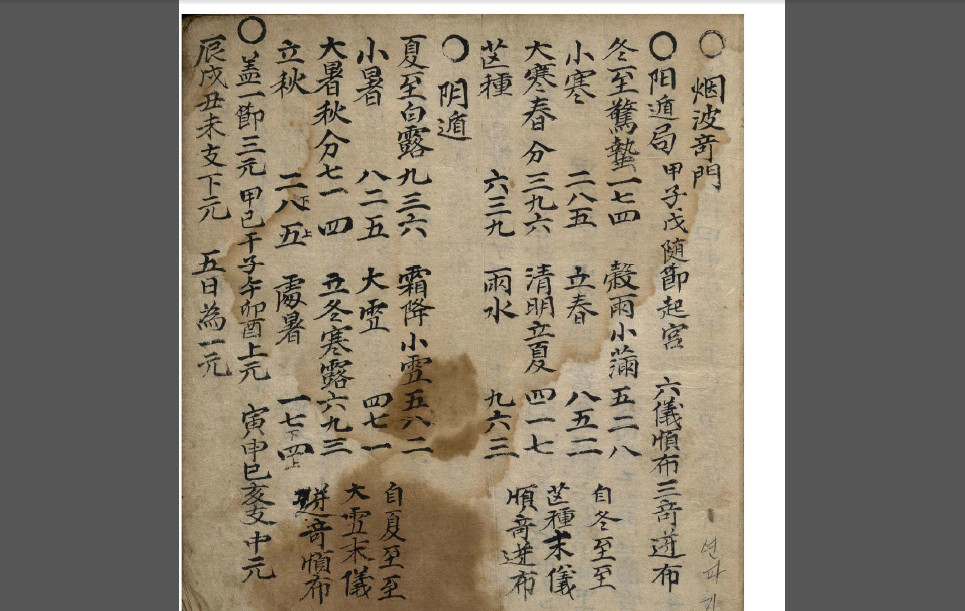 ○ 烟波奇門
연파기
○ 阳遁局 甲子戊随節起宮 六儀順布三奇逆布
冬至驚蟄一七四 穀雨小滿五二八
小寒 二八五 立春 八五二
大寒春分三九六 清明立夏 四一七
芒種 六三九 雨水 九六三
自冬至至
芒種末儀
順奇逆布
○ 阴遁
夏至白露九三六 霜降小雪五八二
小暑 八二五 大雪 四七一
大暑秋分七一四 立冬寒露六九三
立秋 二八下五上 處暑 一七下四上
自夏至至
大雪末儀
逆奇順布
○ 盖一節三元 甲己干子午卯酉上元 寅申巳亥支中元
辰戌丑未支下元 五日為一元